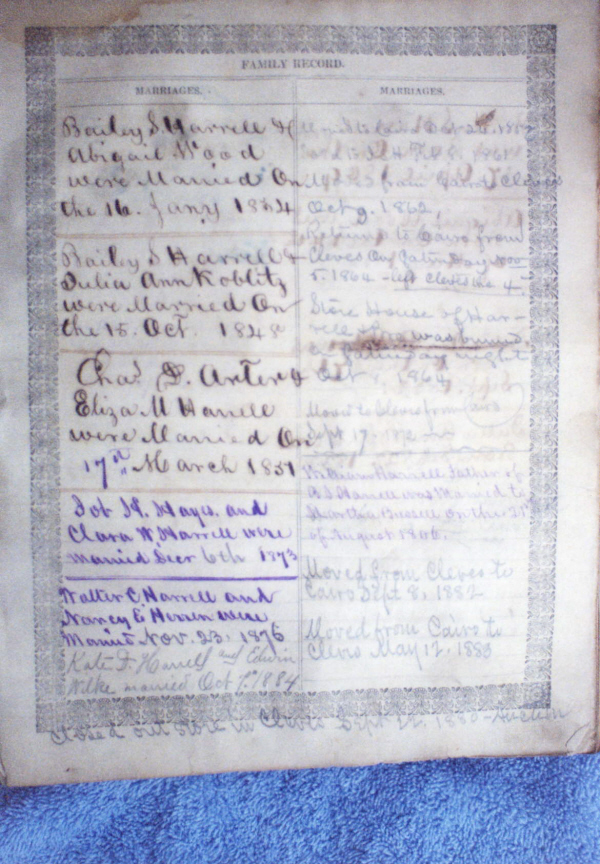 FAMILY RECORD.
MARRIAGES.
Bailey S. Harrell &
Abigail Wood
were Married On
the 16. Jany 1834
Bailey S Harrell &
Julia Ann Koblitz
were Married On
the 15. Oct. 1848
Chas. D. Arter &
Eliza M Harrell
were Married On
17th March 1851
Job H. Hayes and
Clara W Harrell were
married Decr 6th 1873
Walter C Harrell and
Nancy E Herren were
Married Nov. 23. 1876
Kate F. Harrell and Edwin
Wilke married Oct 1st 1884
MARRIAGES.
from Cleves
Oct 9. 1862.
Return to Cairo from
Cleves On Saturday Nov
5. 1864 - left Cleves the 4
Store House of Har-
rell was burned
on Saturday night
Oct 1864
Moved to Cleves from
Sept 17.
William Harrell father of
B S Harrell was Married to
Martha Bussell on the 21st
of August 1806.
Moved from Cleves to
Cairo Sept 8, 1882
Moved from Cairo to
Cleves May 12, 1883
Closed out store in Sept 22. 1880 - Auction